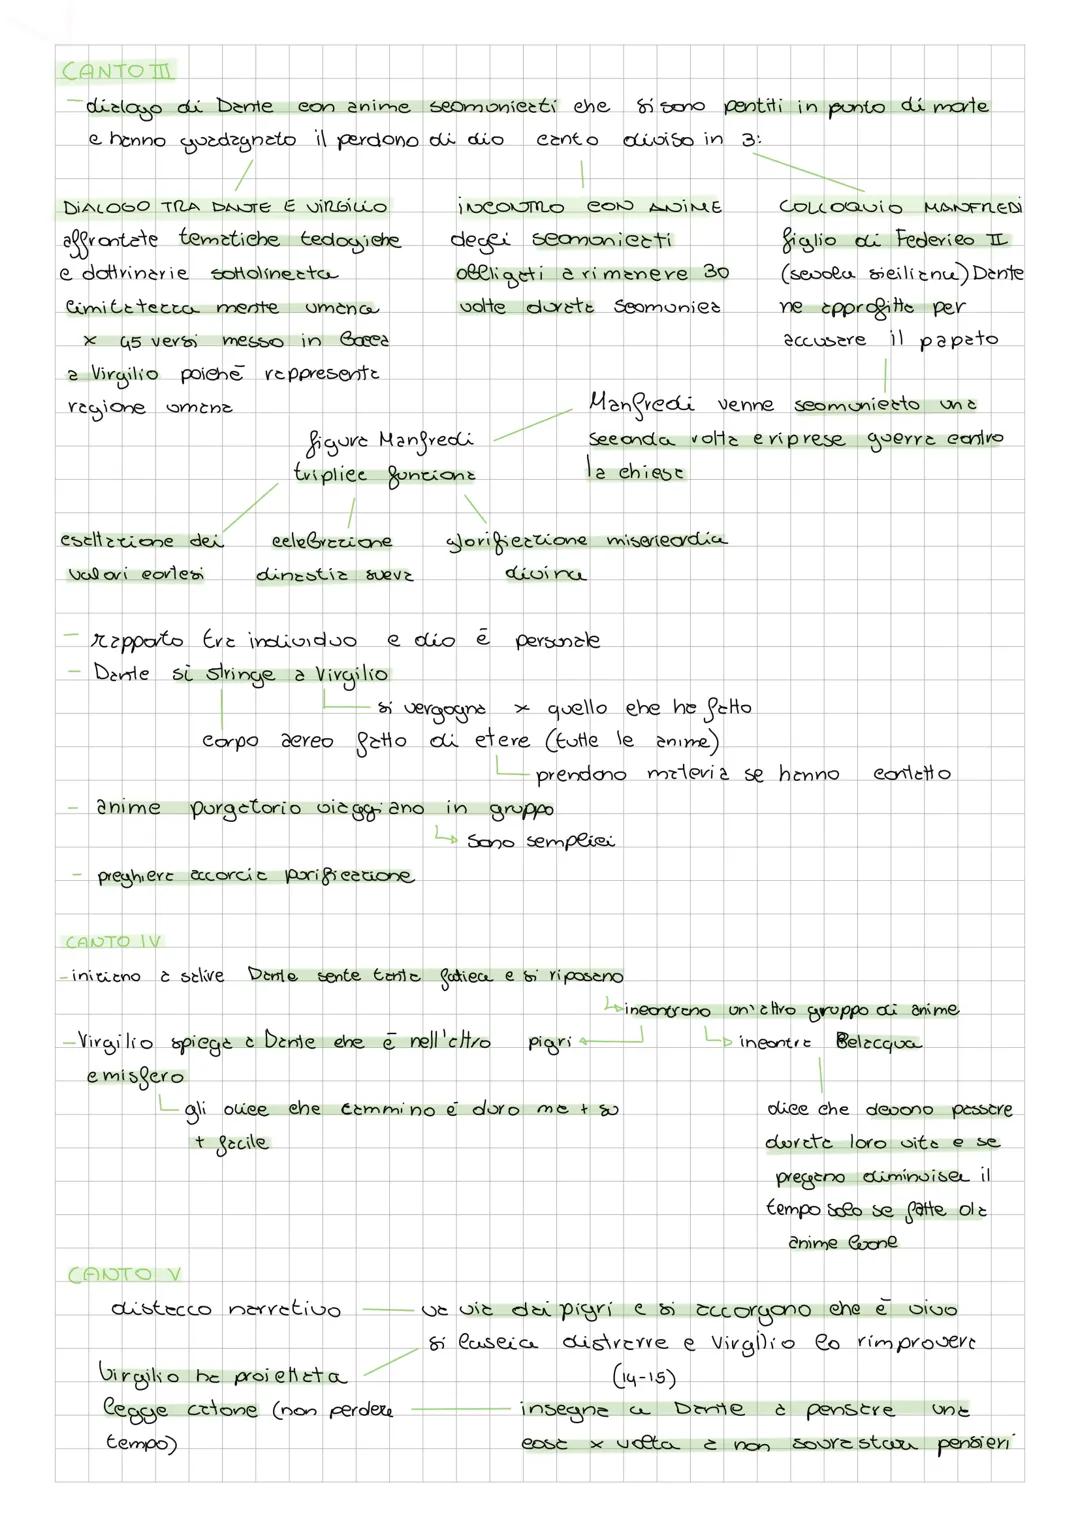 CANTO III
- dialogo di Dante con anime scomunicati che si sono pentiti in punto di morte
e hanno guadagnato il perdono di dio canto diviso in 3:
DIALOGO TRA DANTE E VIRGILIO
affrontate tematiche teologiche
e dottrinarie sottolineata
limitatezza mente umana
x 45 versi messo in bocca
a Virgilio poichē rappresenta
ragione umana
INCONTRO CON ANIME
degli scomunicati
obbligati a rimanere 30
volte durata scomunica
COLLOQUIO MANFREDI
figlio di Federico II
(scuola siciliana) Dante
ne approfitta per
accusare il papato
Manfredi venne scomunicato una
seconda volta e riprese guerra contro
la chiesa
figura Manfredi
triplice funziona
esaltazione dei
valori cortesi
celebrazione
dinastia sueva
glorificazione misericordia
divina
- rapporto tra individuo e dio ē personale
- Dante si stringe a Virgilio
si vergogna x quello che ha fatto
corpo aereo fatto di etere (tutte le anime)
prendono materia se hanno contatto
- anime purgatorio viaggiano in gruppo
↳ sono semplici
- preghiera accorcia purificazione
CANTO IV
- iniziano a salire Dante sente tanta fatica e si riposano
↳ incontrano un'altro gruppo di anime
- Virgilio spiega a Dante che ē nell'altro
emisfero
pigri
↳ incontra Belacqua
gli dice che cammino ē duro ma + su
+ facile
dice che devono passare
durata loro vita e se
pregano diminuisce il
tempo solo se fatte da
anime buone
CANTO V
distacco narrativo
va via dai pigri e si accorgono che ē vivo
si lascia distrarre e Virgilio lo rimprovera
(14-15)
Virgilio ha proiettata
legge catone (non perdere
tempo)
insegna a Dante a pensare una
cosa x volta a non sovrastare pensieri